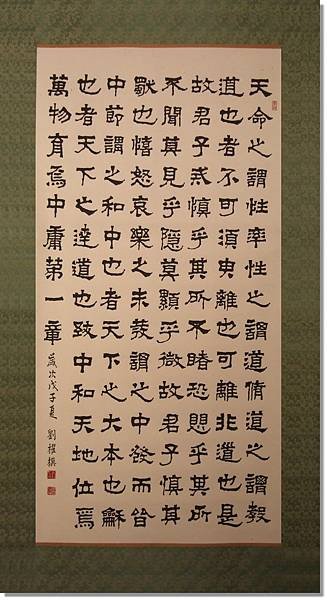 天命之謂性率性之謂道脩道之謂教
道也者不可須臾離也可離非道也是
故君子戒慎乎其所不睹恐懼乎其所
不聞莫見乎隱莫顯乎微故君子慎其
獨也憘怒哀樂之未發謂之中發而皆
中節謂之和中也者天下之大本也龢
也者天下之達道也致中和天地位焉
萬物育焉中庸第一章
歲次戊子夏 劉